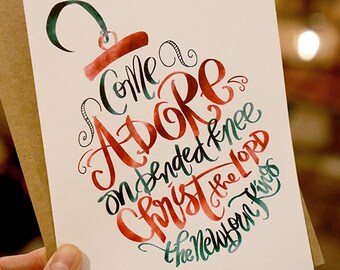 Come
ADORE
on bended knee
Christ the LORD
the Newborn King